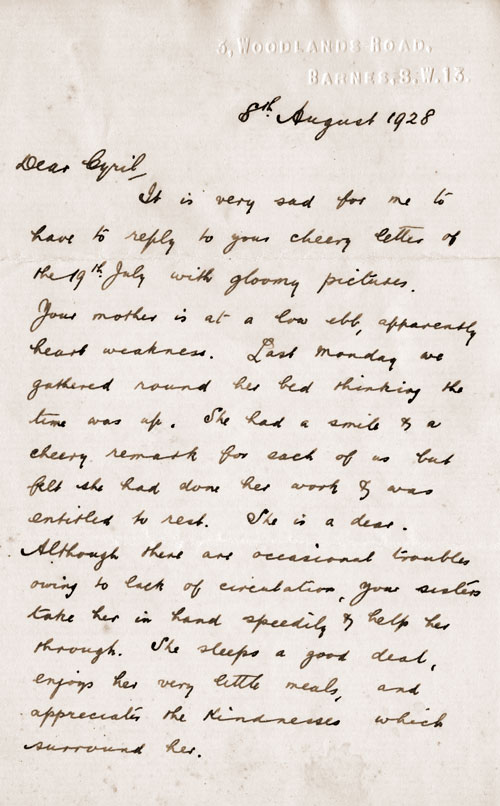 3, WOODLANDS ROAD,
BARNES, S.W.13.
8th August 1928
Dear Cyril,
It is very sad for me to
have to reply to your cheery letter of
the 19th July with gloomy pictures.
Your mother is at a low ebb, apparently
heart weakness. Last Monday we
gathered round her bed thinking the
time was up. She had a smile & a
cheery remark for each of us but
felt she had done her work & was
entitled to rest. She is a dear.
Although there are occasional troubles
owing to lack of circulation, your sisters
take her in hand speedily & help her
through. She sleeps a good deal,
enjoys her very little meals, and
appreciates the kindnesses which
surround her.